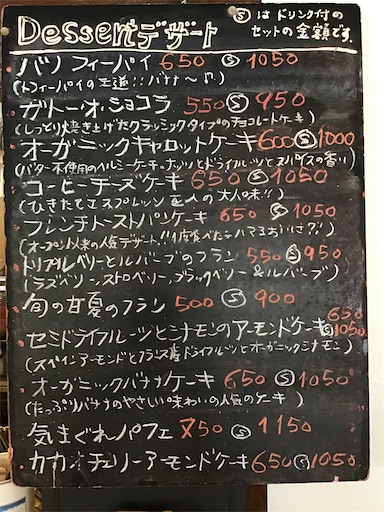 Dessertデザート
Ⓢは ドリンク付の
セットの金額です。
バノフィーパイ 650 Ⓢ 1050
(トフィーパイの王道!! バナナ〜
ガトー・オ・ショコラ 550 Ⓢ 950
(しっとり焼き上げたクラッシックタイプのチョコレートケーキ)
オーガニックキャロットケーキ 600 Ⓢ 1000
(バター不使用のヘルシーケーキ。ナッツとドライフルーツとスパイスの香り)
コーヒーチーズケーキ 650 Ⓢ 1050
(ひきたてエスプレッソ 入りの大人味!!)
フレンチトーストパンケーキ 650 Ⓢ 1050
(オープン以来の人気デザート!! 1度食べたらハマるおいしさ?!)
トリプルベリーとルバーブのフラン 550 Ⓢ 950
(ラズベリー、ストロベリー、ブラックベリー & ルバーブ)
旬の甘夏のフラン 500 Ⓢ 900
セミドライフルーツとシナモンのアーモンドケーキ 650 Ⓢ 1050
(スペインアーモンドとフランス産ドライフルーツとオーガニックシナモン)
オーガニックバナナケーキ 650 Ⓢ 1050
(たっぷりバナナのやさしい味わいの人気のケーキ)
気まぐれパフェ 750 Ⓢ 1150
カカオチェリーアーモンドケーキ 650 Ⓢ 1050